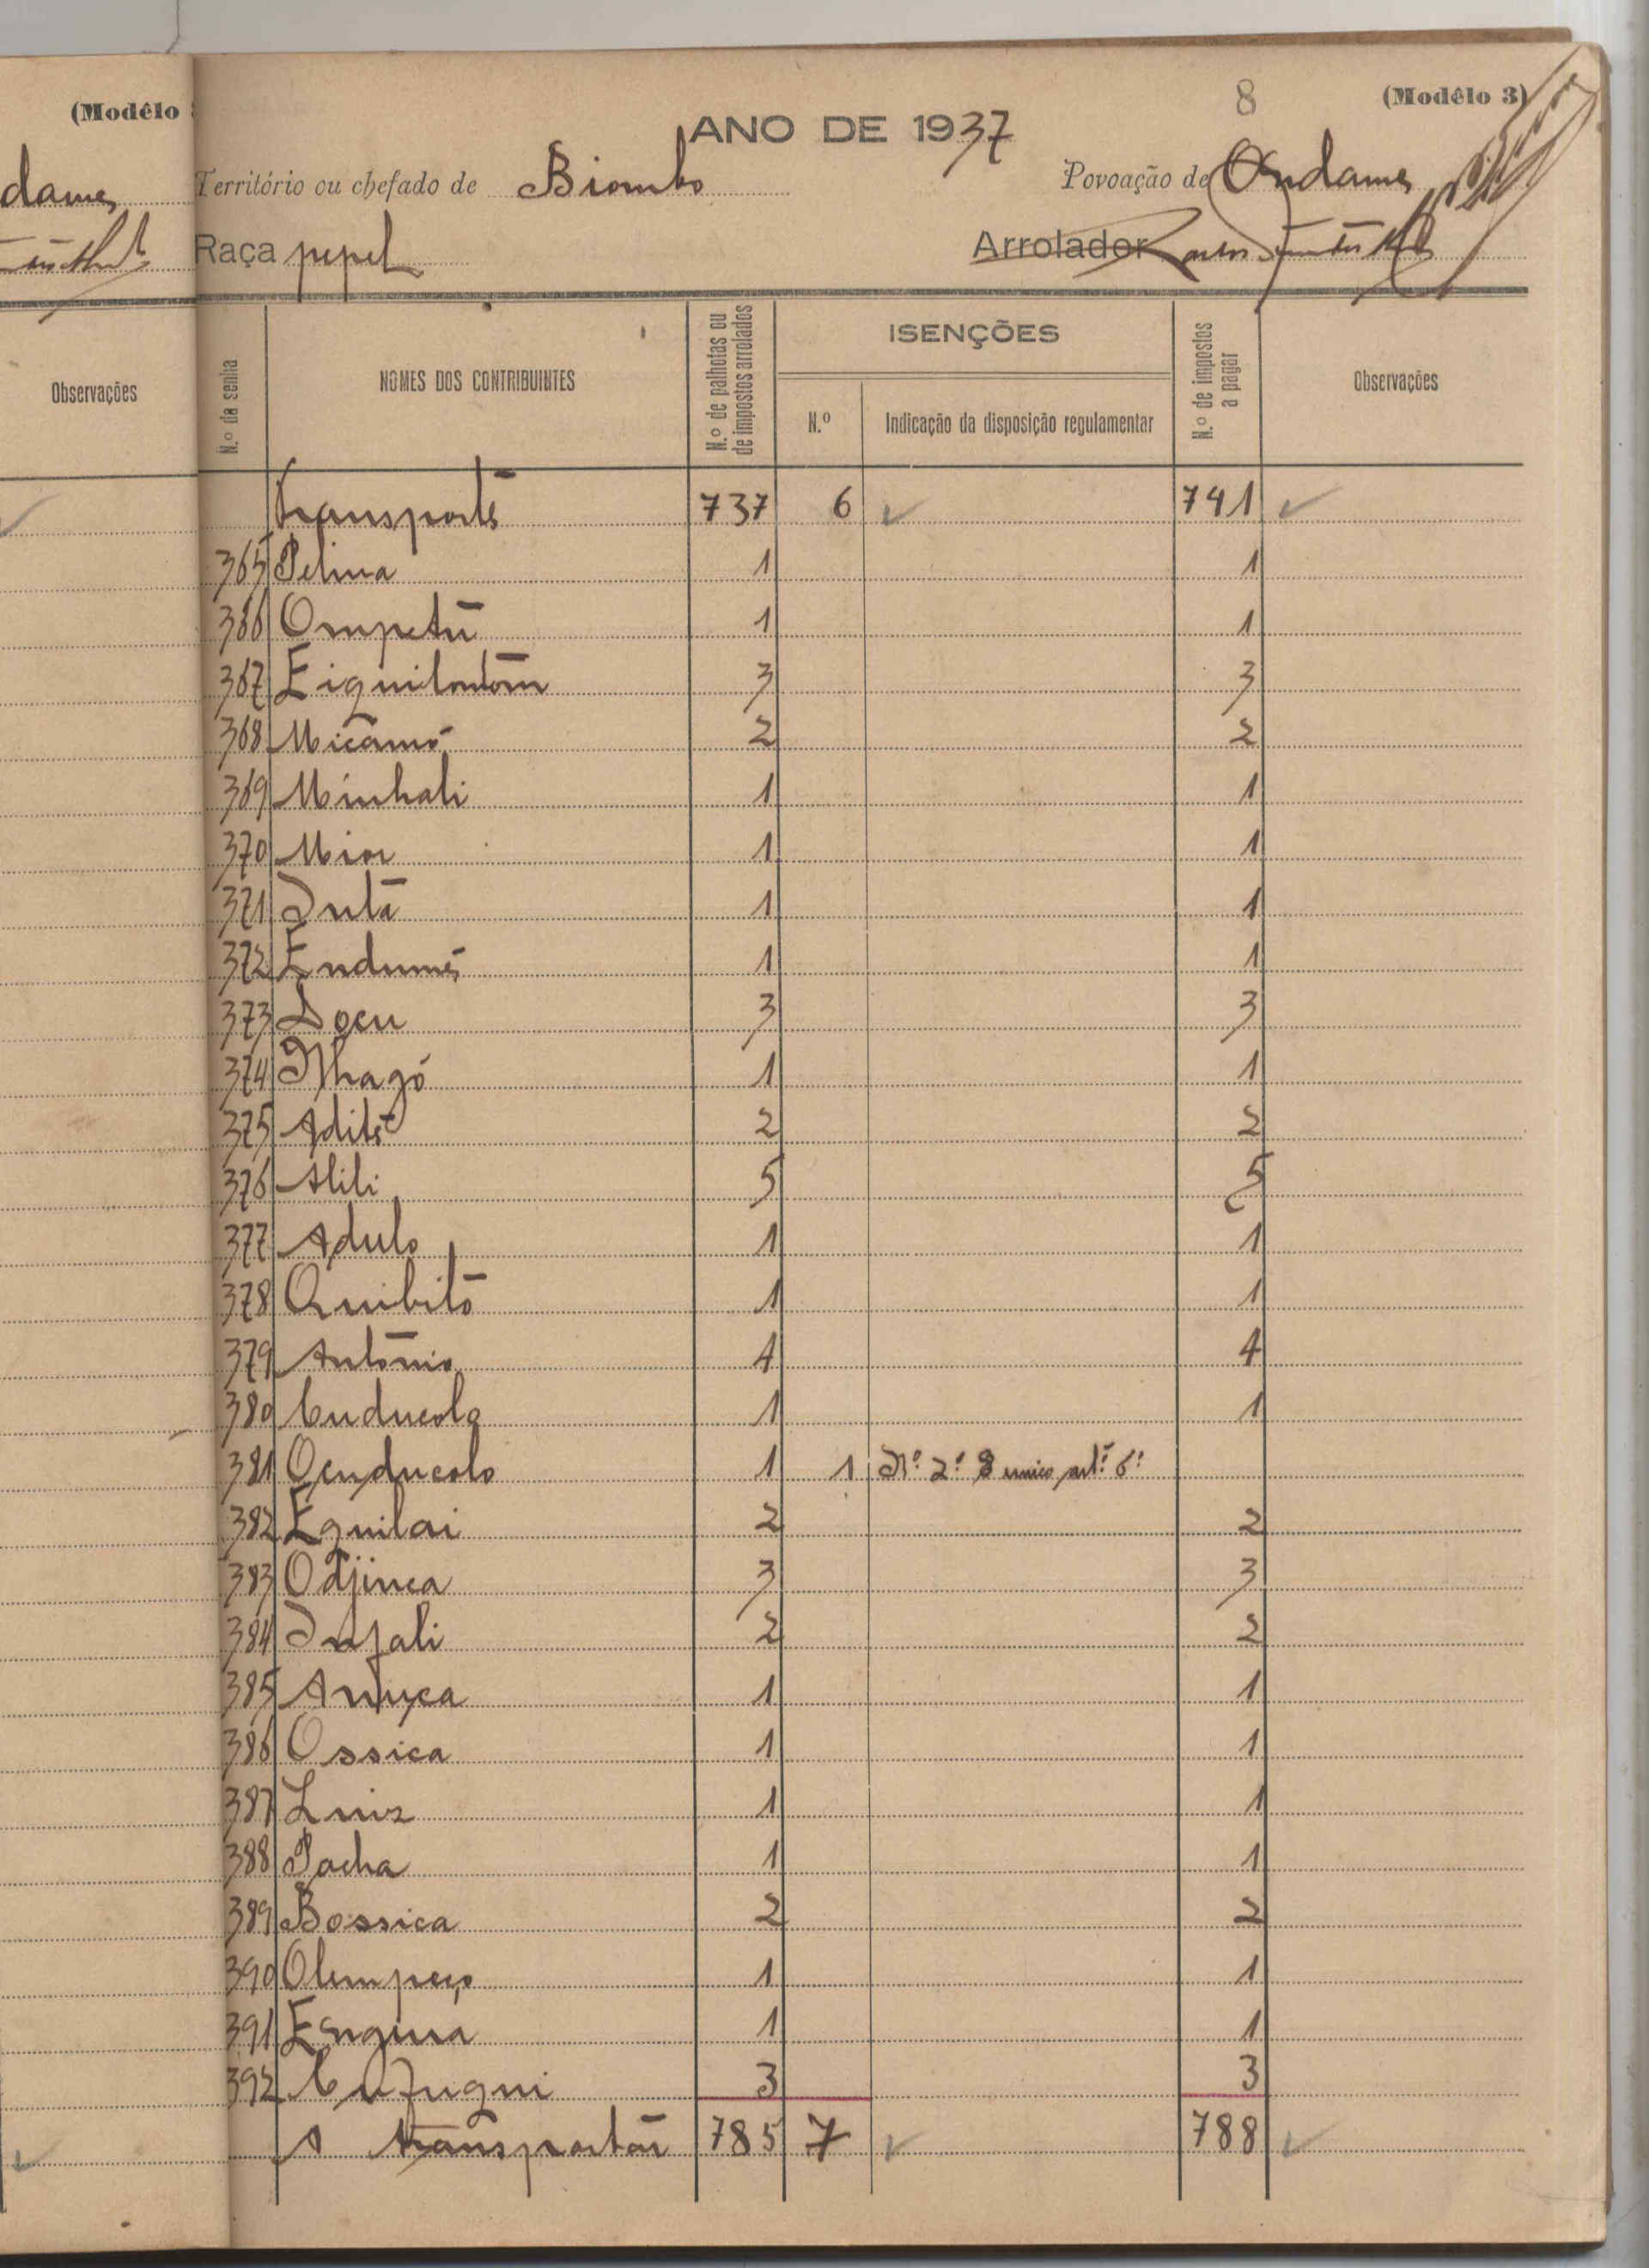 (Modêlo
dames
Observações
8
(Modêlo 3)
ANO DE 1937
Território ou chefado de Biombo
Povoação de Ondames
Raça pepel
Arrolador
N.º da senha
NOMES DOS CONTRIBUINTES
N.º de palhotas ou de impostos arrolados
ISENÇÕES
N.º
Indicação da disposição regulamentar
N.º de impostos a pagar
Observações
Transporte 737 6 741
365 Pelina 1 1
366 Ompetū 1 1
367 3 3
368 Micamó 2 2
369 Minhali 1 1
370 Mior 1 1
371 Intā 1 1
372 Endumé 1 1
373 Docu 3 3
374 1 1
375 Aditē 2 2
376 Alili 5 5
377 Adulo 1 1
378 Quibitō 1 1
379 Antōnio 4 4
380 Cuducolo 1 1
381 Ocuducolo 1 1 N.º 2.º § unico art.º 6.º
382 Equilai 2 2
383 Odjinca 3 3
384 Infali 2 2
385 1 1
386 Ossica 1 1
387 Luiz 1 1
388 Pacha 1 1
389 Bossica 2 2
390 Olempeço 1 1
391 1 1
392 3 3
A transportar 785 7 788